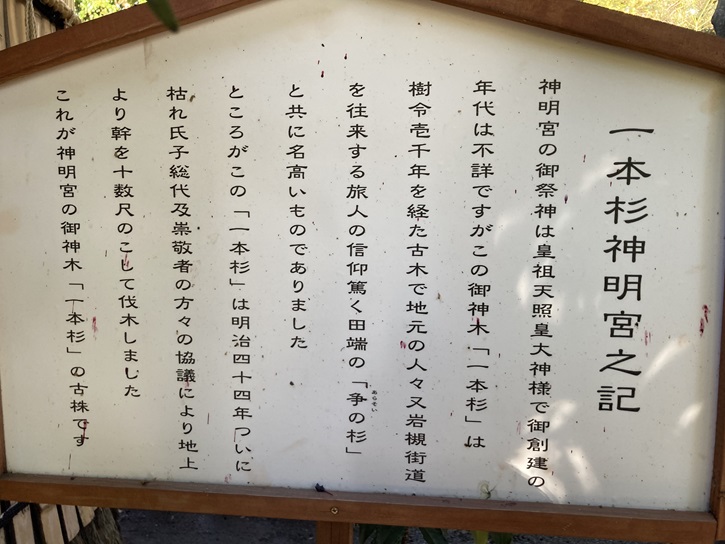 一本杉神明宮之記
神明宮の御祭神は皇祖天照皇大神様で御創建の
年代は不詳ですがこの御神木「一本杉」は
樹令壱千年を経た古木で地元の人々又岩槻街道
を往来する旅人の信仰篤く田端の「争の杉」
あらそい
と共に名高いものでありました
ところがこの「一本杉」は明治四十四年ついに
枯れ氏子総代及崇敬者の方々の協議により地上
より幹を十数尺のこして伐木しました
これが神明宮の御神木「一本杉」の古株です